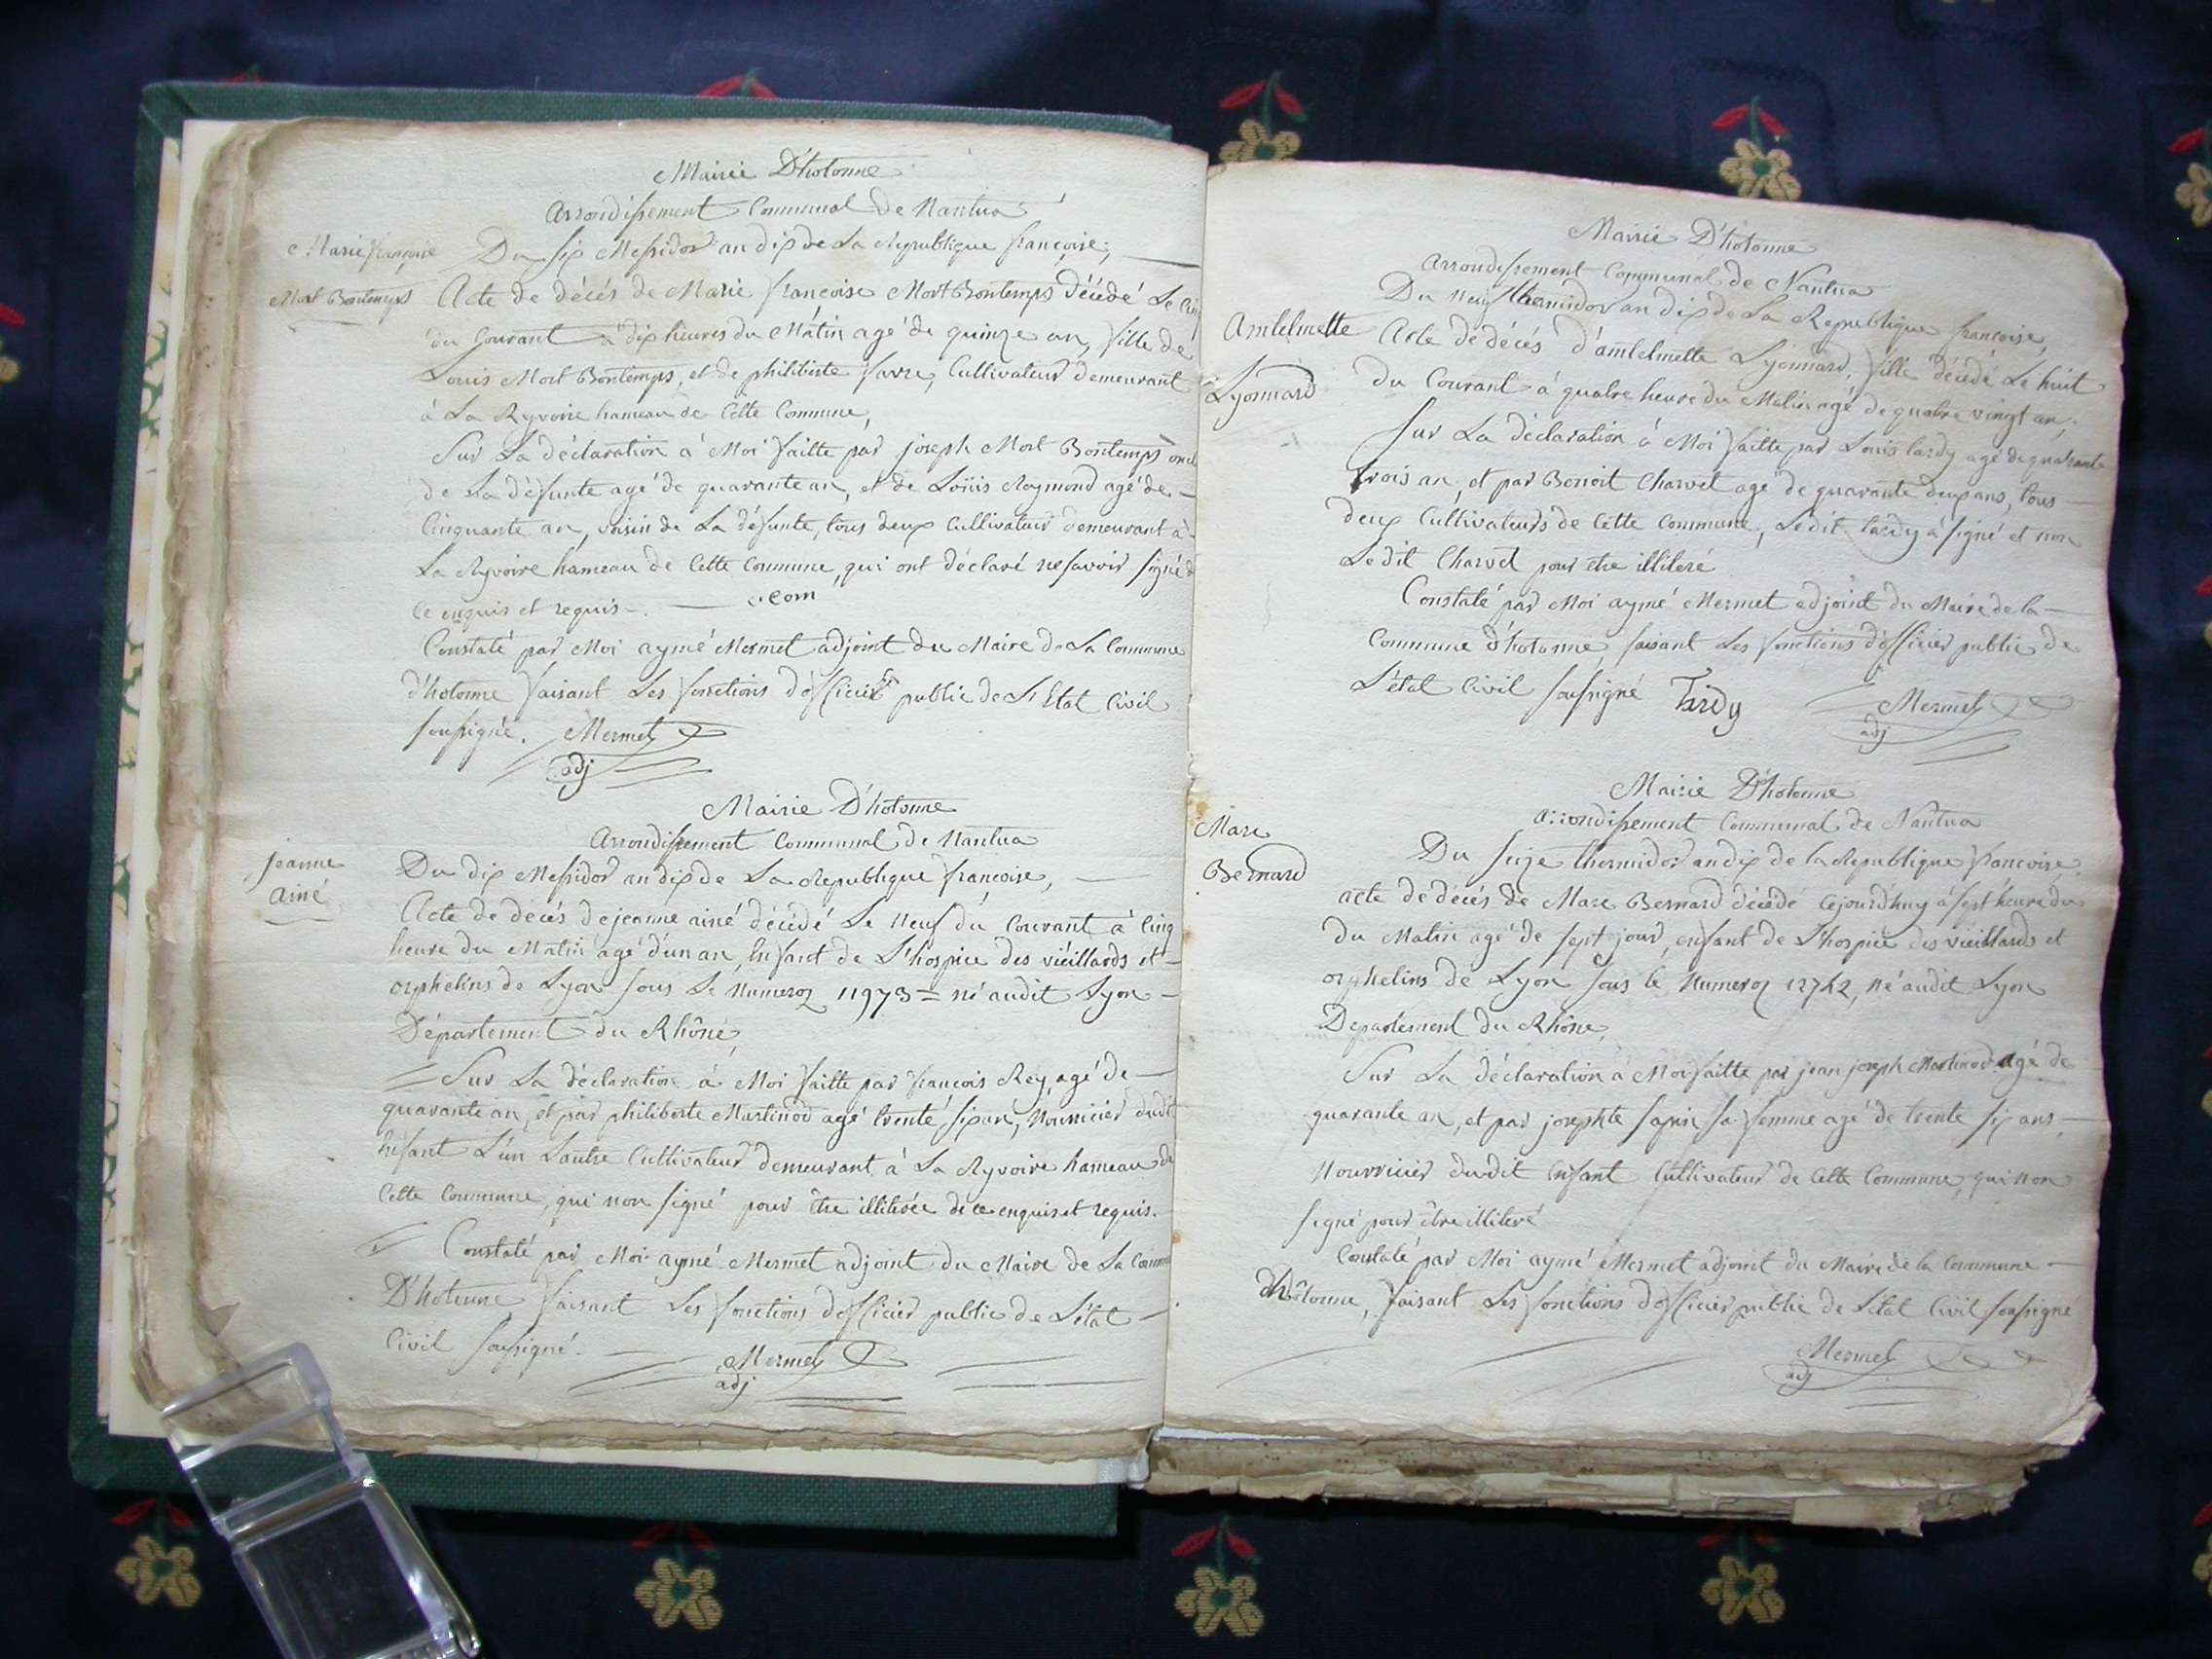 Mairie D'hotonne
arrondissement Communal de Nantua
Marie françoise
Mort Bontemps
Du six Messidor an dix de La Republique françoise,
Acte de décés de Marie françoise Mort Bontemps décédé Le cinq
du Courant à dix heures du Matin agé de quinze an, fille de
Louis Mort Bontemps, et de philiberte favre, Cultivateur demeurant
à La Ryvoire hameau de Cette Commune,
Sur La déclaration à Moi faitte par joseph Mort Bontemps oncle
de La défunte agé de quarante an, et de Loüis Raymond agé de
Cinquante an, voisin de La défunte, tous deux Cultivateur demeurant à
La Ryvoire hameau de Cette Commune, qui ont déclaré ne savoir signé de
Ce enquis et requis. com
Constaté par Moi aymé Mermet adjoint du Maire de La Commune
d'hotonne faisant Les fonctions d'officier public de L'Etat Civil
soussigné. Mermet
adj
Mairie D'hotonne
Arrondissement Communal de Nantua
jeanne
ainé
Du dix Messidor an dix de La Republique françoise,
Acte de décés de jeanne ainé décédé Le Neuf du Courant à Cinq
heure du Matin agé d'un an, Enfant de L'hospice des viéillards et
orphelins de Lyon sous Le Numeroz 11973 = né audit Lyon
Département du Rhône,
Sur La déclaration à Moi faitte par françois Rey, agé de
quarante an, et par philiberte Martinod agé trente six an, Nourricier dudit
Enfant L'un L'autre Cultivateur demeurant à La Ryvoire hameau de
Cette Commune, qui non signé pour être illiterée de ce enquis et requis.
Constaté par Moi aymé Mermet adjoint du Maire de La Commune
D'hotonne faisant Les fonctions d'officier public de L'état
Civil soussigné.
Mermet
adj
Mairie D'hotonne
arrondissement Communal de Nantua
Du Neuf thermidor an dix de La Republique françoise,
Amtelmette
Lyonnard
Acte de décés d'amtelmette Lyonnard, fille décédé Le huit
du Courant à quatre heure du Matin agé de quatre vingt an,
Sur La déclaration à Moi faitte par Louis tardy agé de quarante
trois an, et par Benoit Charvet agé de quarante deux ans, tous
deux Cultivateurs de Cette Commune, Ledit tardy à signé et non
Ledit Charvet pour etre illiteré
Constaté par Moi aymé Mermet adjoint du Maire de la
Commune d'hotonne, faisant Les fonctions d'officier public de
L'état Civil soussigné Tardy Mermet
adj
Mairie D'hotonne
arrondissement Communal de Nantua
Marc
Bernard
Du seize thermidor an dix de la Republique françoise,
acte de décés de Marc Bernard décédé Cejourd'huy à sept heure du
du Matin agé de sept jour, enfant de L'hospice des vieillards et
orphelins de Lyon sous le Numeroz 12742, né audit Lyon
Departement du Rhône,
Sur La déclaration à Moi faitte par jean joseph Martinod agé de
quarante an, et par josephte sapin sa femme agé de trente six ans
Nourricier dudit Enfant Cultivateur de Cette Commune, qui non
signé pour être illiteré
Constaté par Moi aymé Mermet adjoint du Maire de la Commune
d'hotonne, faisant Les fonctions d'officier public de L'état Civil soussigné
Mermet
adj